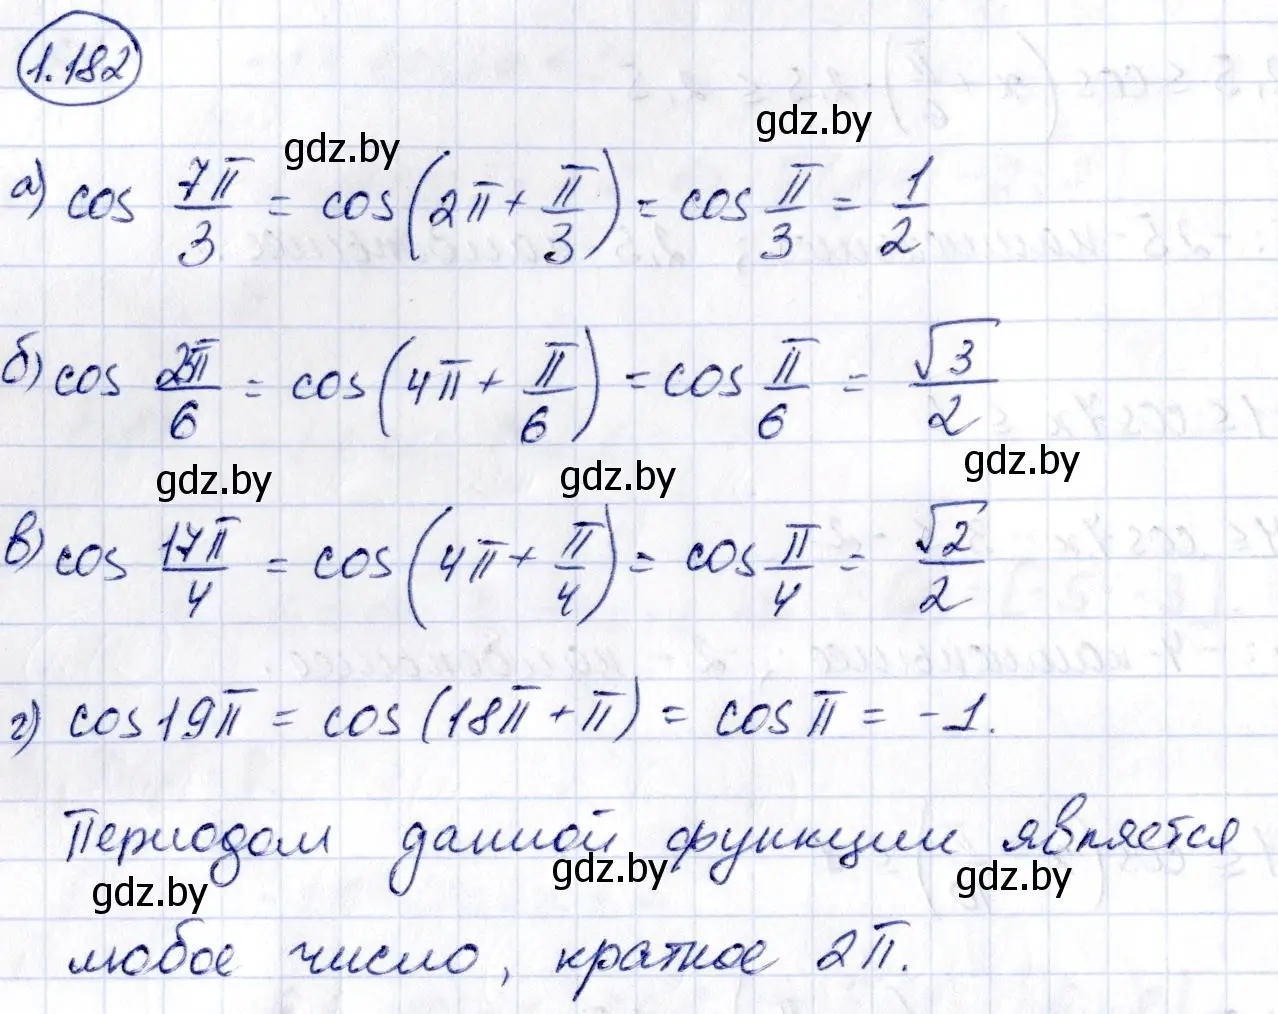 1.182
gdz.by gdz.by
а) cos 7π/3 = cos(2π + π/3) = cos π/3 = 1/2
б) cos π/6 = cos(4π + π/6) = cos π/6 = √3/2
gdz.by gdz.by gdz.by
в) cos 17π/4 = cos(4π + π/4) = cos π/4 = √2/2
г) cos 19π = cos(18π + π) = cos π = -1.
Периодом данной функции является
gdz.by gdz.by gdz.by
любое число, кратное 2π.